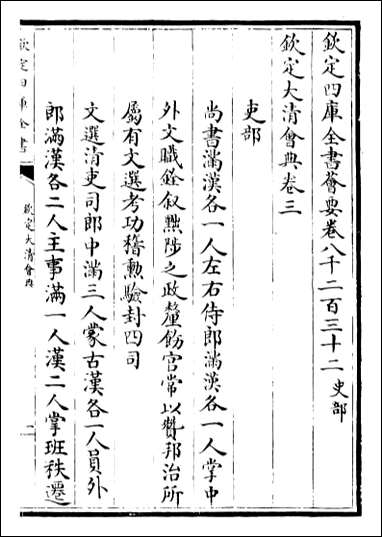 欽定四庫全書薈要卷八千二百三十二 史部
欽定大清會典卷三
吏部
尚書滿漢各一人左右侍郎滿漢各一人掌中
外文職銓叙黜陟之政釐飭官常以贊邦治所
屬有文選考功稽勲驗封四司
文選清吏司郎中滿三人蒙古漢各一人員外
郎滿漢各二人主事滿一人漢二人掌班秩遷
欽定四庫全書
欽定大清會典